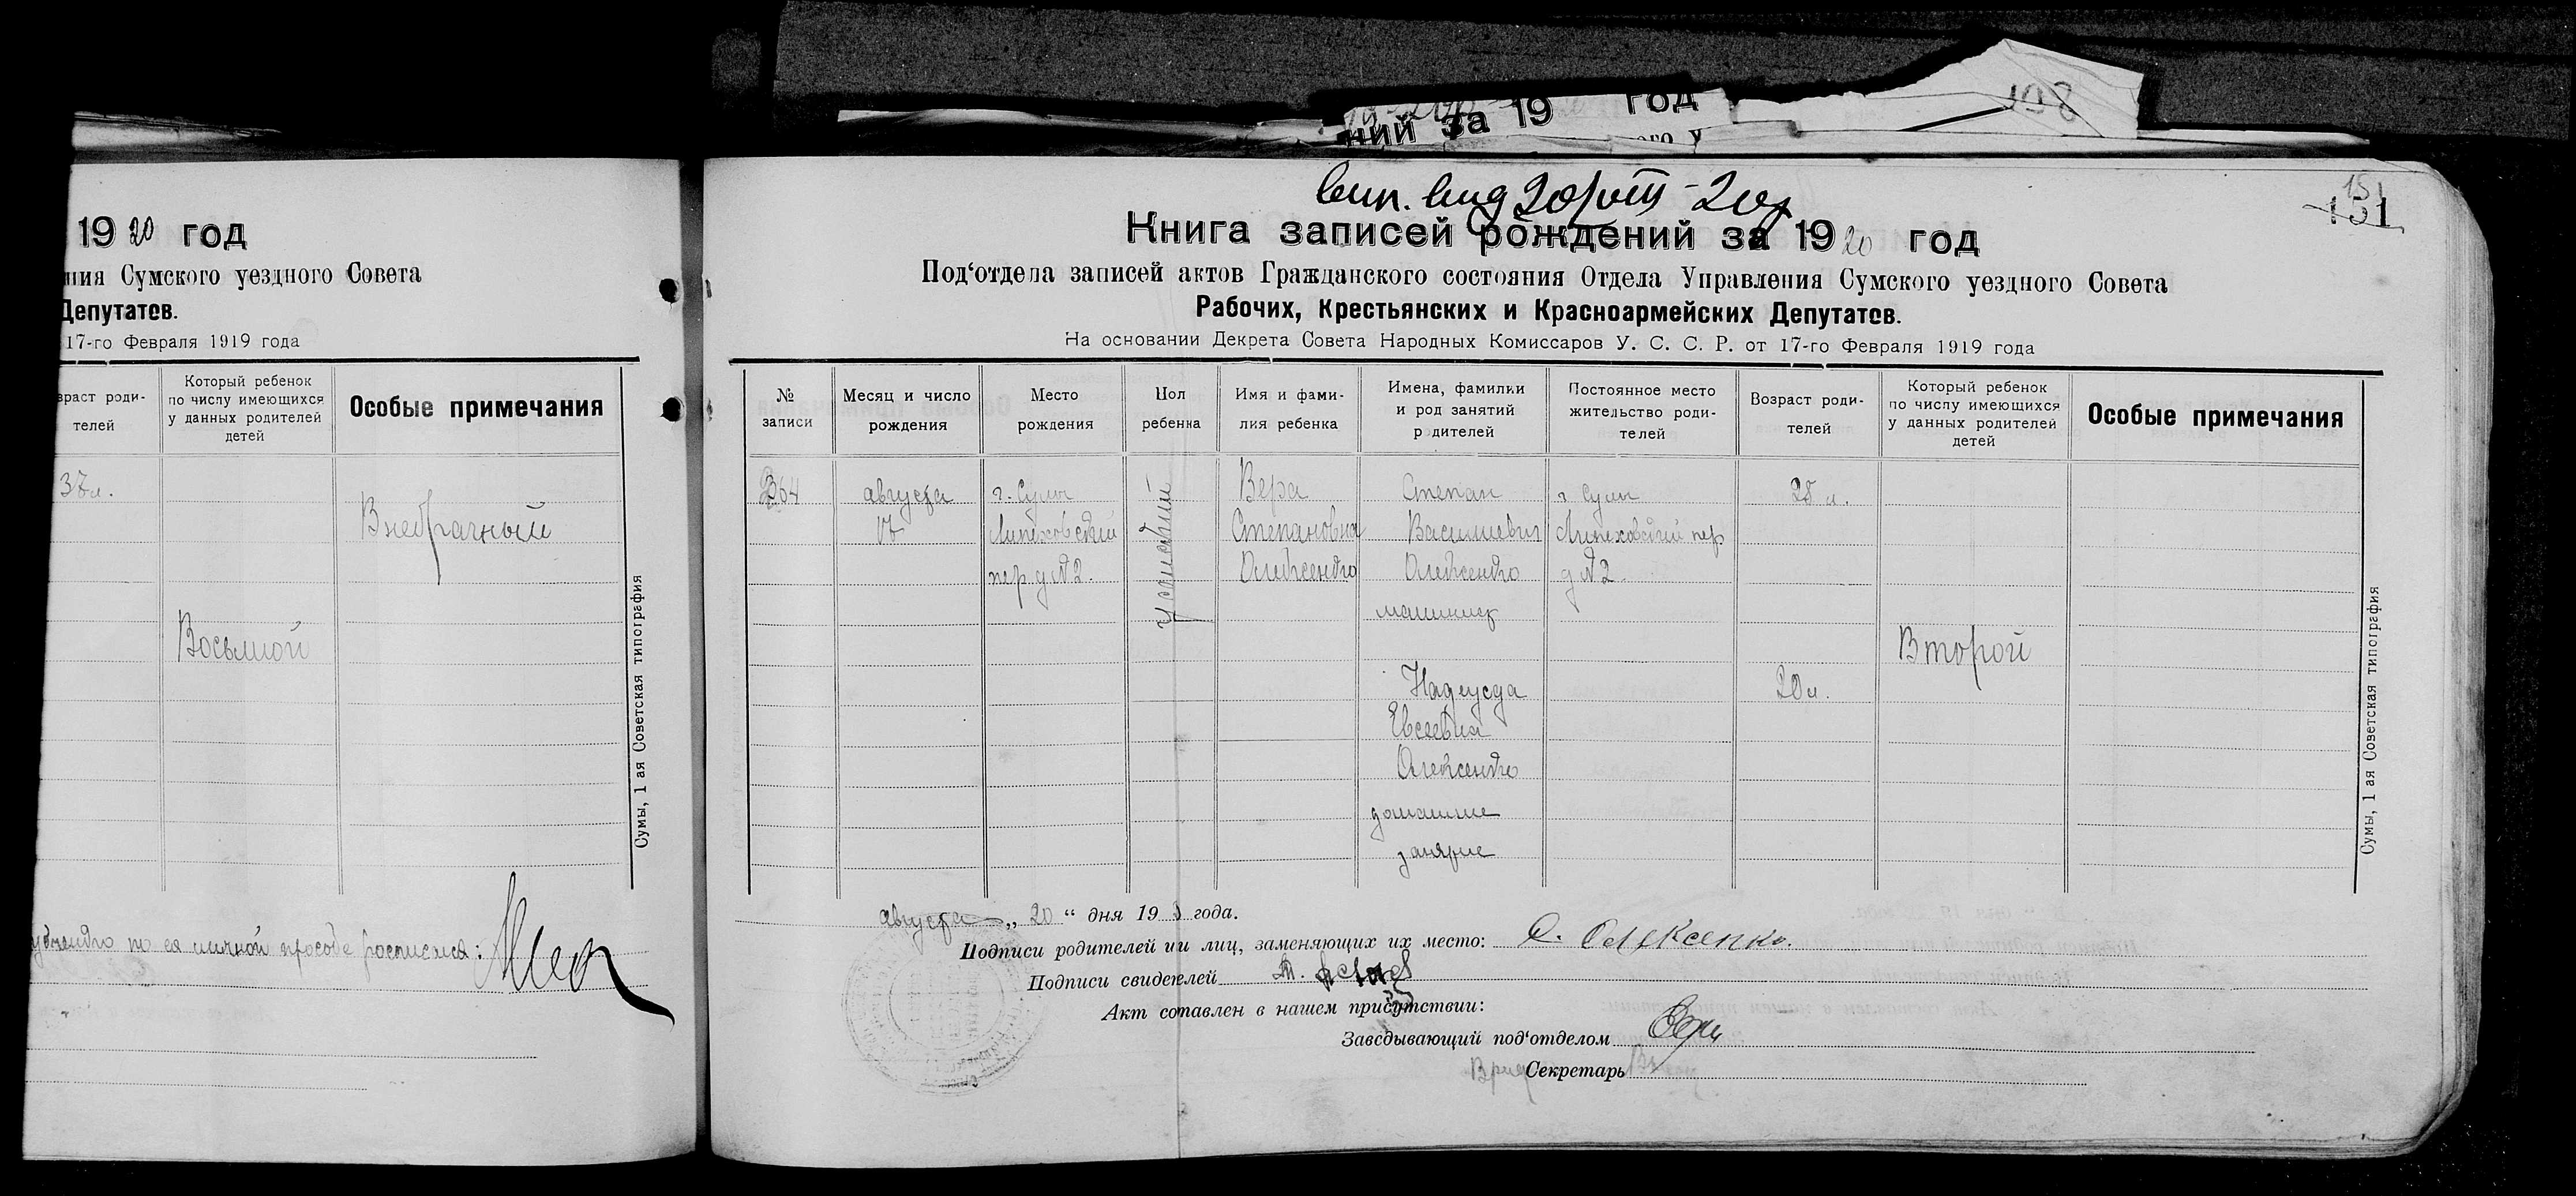 ний за 19 год
198
1920 год
ния Сумского уездного Совета
Депутатов.
17-го Февраля 1919 года
зраст роди-
телей
Который ребенок
по числу имеющихся
у данных родителей
детей
Особые примечания
37л.
Внебрачный
Восьмой
по ея личной прозьбе росписался:
Сумы, 1 ая Советская типография
151
151
Книга записей рождений за 1920 год
Под'отдела записей актов Гражданского состояния Отдела Управления Сумского уездного Совета
Рабочих, Крестьянских и Красноармейских Депутатов.
На основании Декрета Совета Народных Комиссаров У. С. С. Р. от 17-го Февраля 1919 года
№
записи
Месяц и число
рождения
Место
рождения
Пол
ребенка
Имя и фами-
лия ребенка
Имена, фамилии
и род занятий
родителей
Постоянное место
жительство роди-
телей
Возраст роди-
телей
Который ребенок
по числу имеющихся
у данных родителей
детей
Особые примечания
364
августа
г. Сумы
пер. д №2.
Вера
Степановна
Олексенко
Степан
Васильевич
Олексенко
машинист
г Сумы
пер
д №2
28 л.
Второй
Надежда
Евсеевна
Олексенко
домашние
занятие
20 л.
Сумы, 1 ая Советская типография
августа „ 20 “ дня 19 года.
Подписи родителей ии лиц, заменяющих их место: С. Олексенко.
Подписи свидетелей
Акт сотавлен в нашем присутствии:
Заведывающий под'отделом
Врид Секретарь